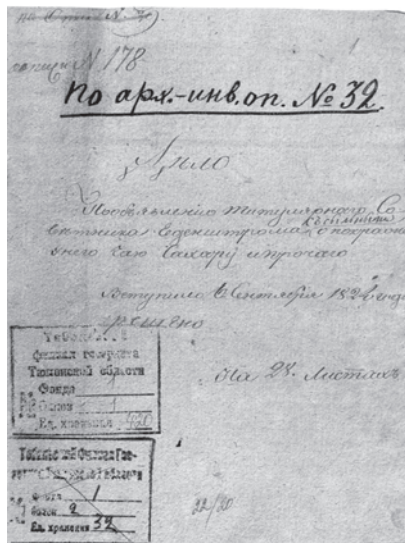 по описи № 178
По арх.-инв. оп. № 32.
Дѣло
По объявленію титулярнаго Со-
вѣтника Еденштрома о покраж
у него чаю сахару и прочаго
Вступило 6 Сентября 182 года
решено
На 28 листахъ
Тобольский
филиал госархива
Тюменской области
Фонд
Опись 1
Ед. хранения
Тобольский Филиал Гос-
архива Тюменской Области
Фонд 1
Опись 2
Ед. хранения 32
22/80